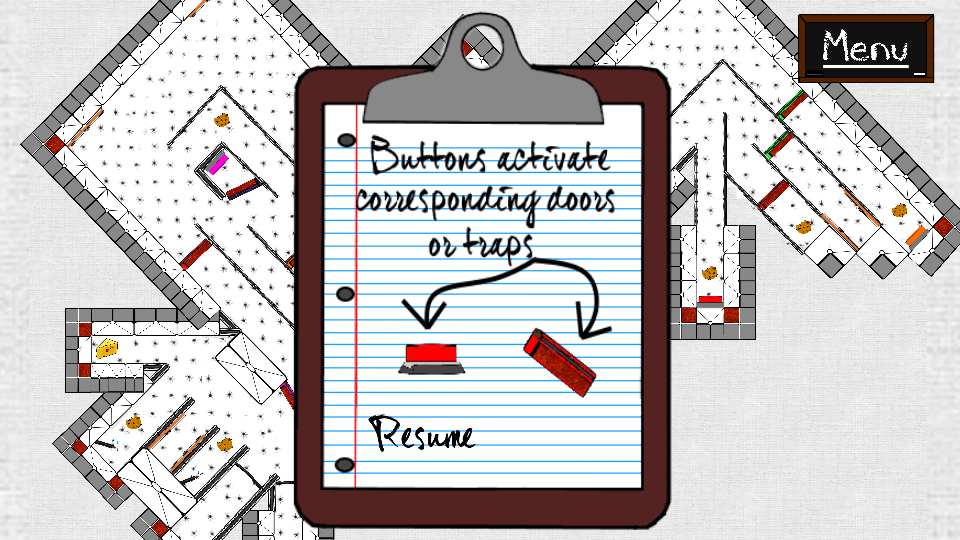 Menu
Buttons activate
corresponding doors
or traps
Resume